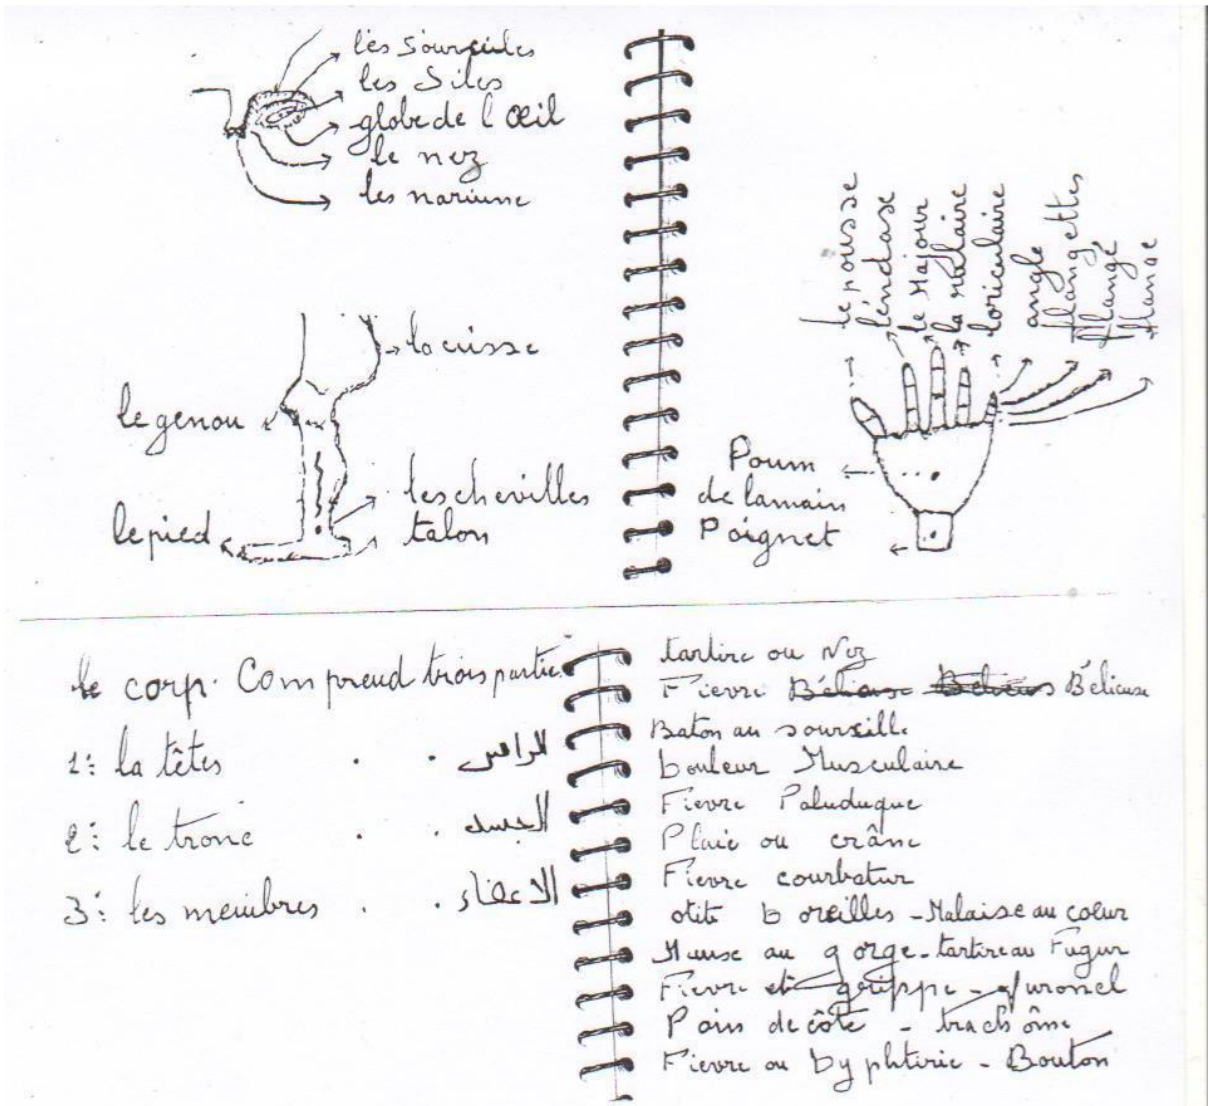 les Sourciles
les Siles
globe de l'Œil
le nez
les nariune
la cuisse
le genou
les chevilles
le pied
talon
le pousse
l'éndase
le Majour
la nulaire
loriculaire
angle
flangettes
flange
Poum
de lamain
Poignet
le corp. Comprend trois partie
1: la têtes . . الراس
2: le tronc . . الجسد
3: les membres . . الاعضاء
tartire ou Nez
Fievre Bélieuse
Baton au sourcille
Douleur Musculaire
Fievre Paluduque
Plaie ou crâne
Fievre courbatur
otite D oreilles - Malaise au cœur
au gorge - tartire au Fugur
Fievre et grippe - furoncl
Poin de côte - trachôme
Fievre ou Dyphtirie - Bouton